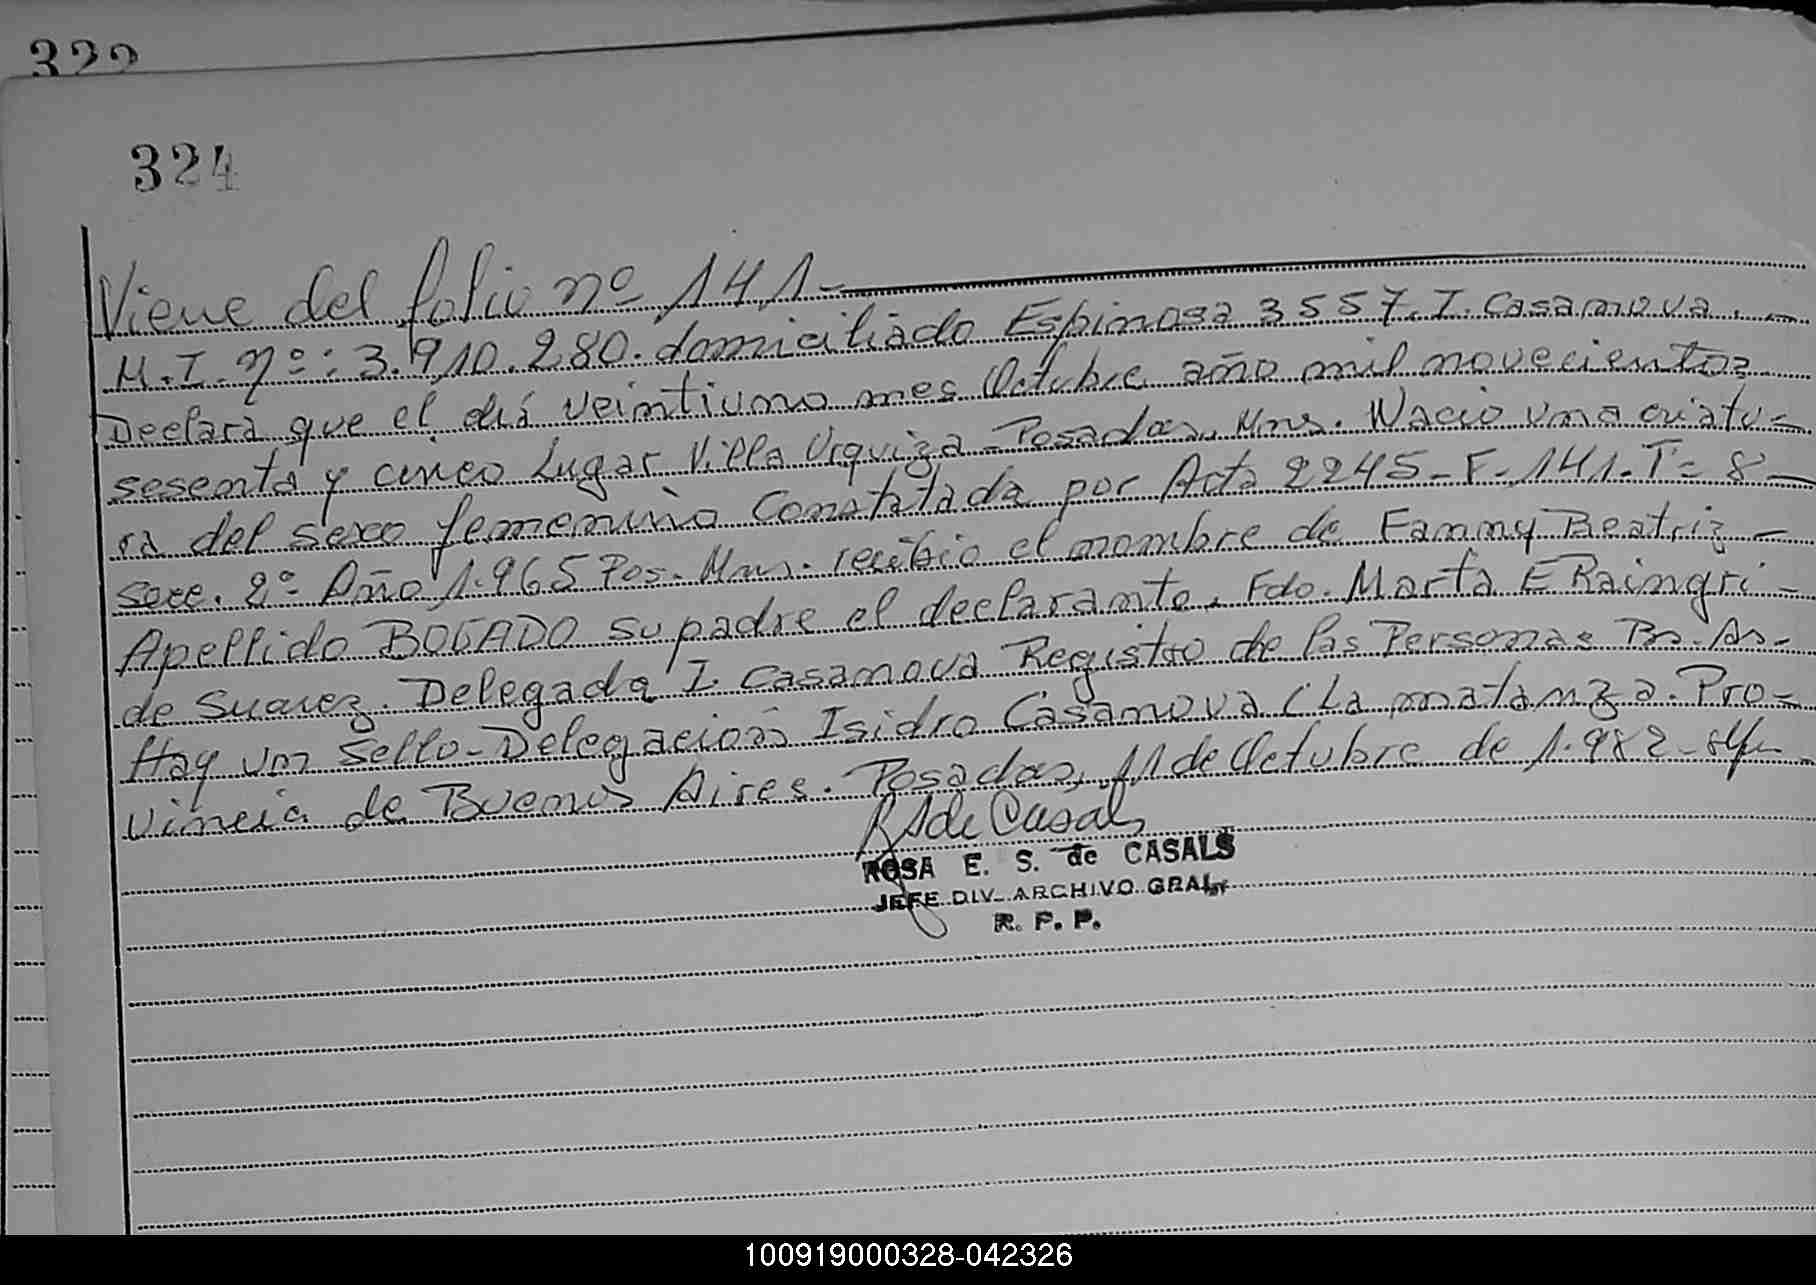 322
324
Viene del folio nº 141-
M.I. nº: 3.910.280. domiciliado Espinosa 3557. I. Casanova. -
Declara que el diá veintiuno mes Octubre año mil novecientos
sesenta y cinco Lugar Villa Urquiza - Posadas, Mns. Nació una criatu=
ra del sexo femenino Constatada por Acta 2245 - F - 141. T= 8 -
secc. 2º Año 1.965 Pos. Mns. recibio el nombre de Fanny Beatriz -
Apellido BOGADO su padre el declarante. Fdo. Marta E Raingri -
de Suarez. Delegada I. Casanova Registro de las Personas Bs. As -
Hay un Sello - Delegación Isidro Casanova (La matanza. Pro=
vincia de Buenos Aires. Posadas, 11 de Octubre de 1.982 -
RSde Casals
ROSA E. S. de CASALS
JEFE DIV. ARCHIVO GRAL.
R. P. P.
100919000328-042326